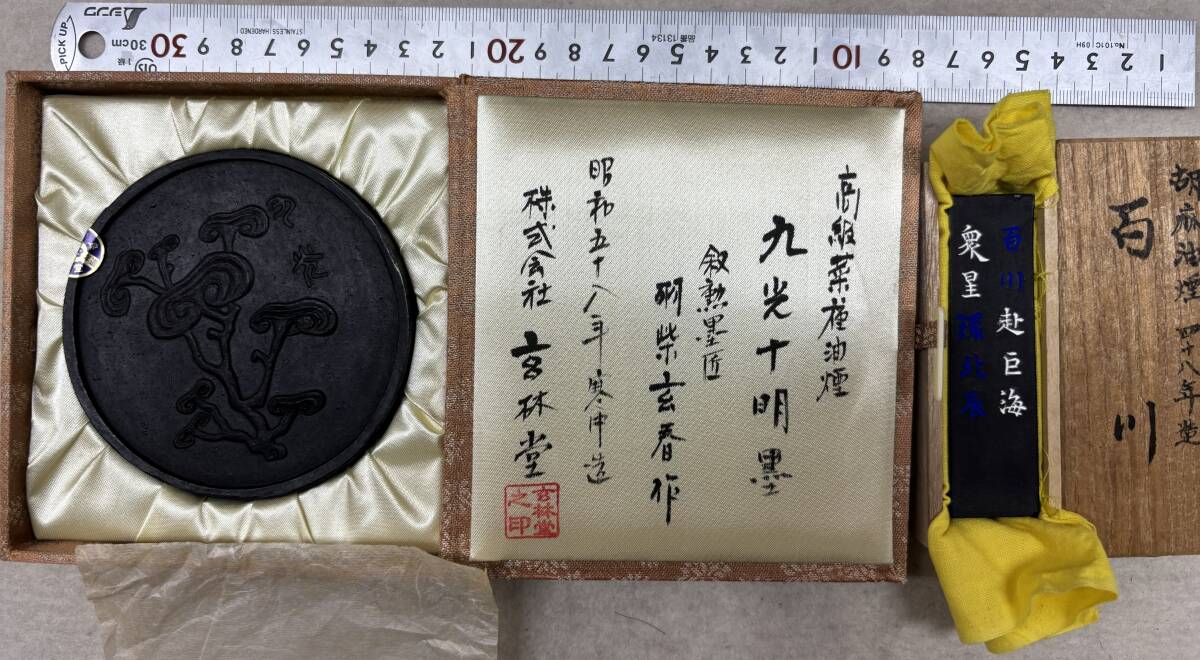 PICK UP
シンワ
30cm
1級
JIS
STAINLESS HARDENED
品番 13134
No.101C I09H
30 9 8 7 6 5 4 3 2 1 20 9 8 7 6 5 4 3 2 1 10 9 8 7 6 5 4 3 2 1
高級菜種油煙
九光十明墨
叙勲墨匠
柴玄春作
昭和五十八年 寒中造
株式会社 玄林堂
玄林堂之印
百川赴巨海
衆星環北辰
胡麻油煙 四十八年造
百川